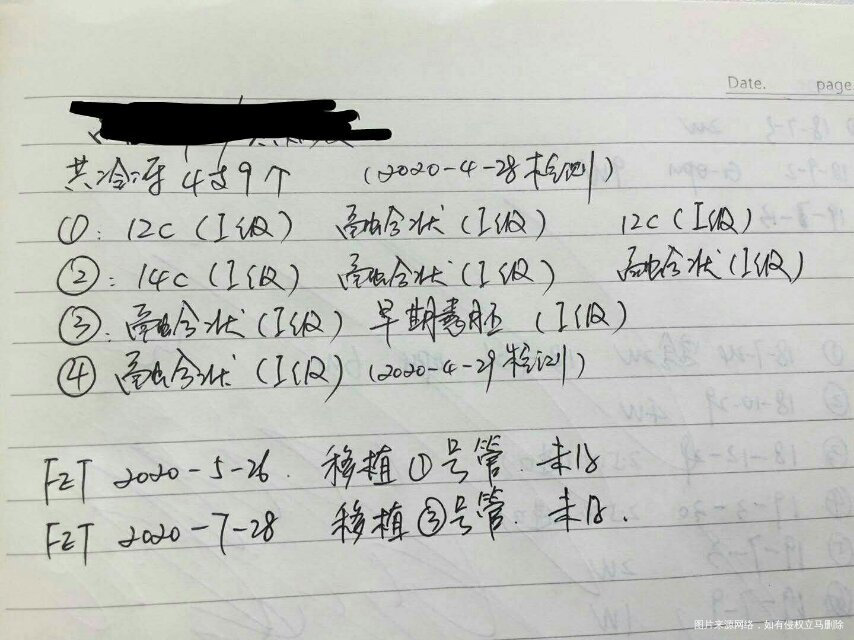 Date. page
共冷冻4支9个 (2020-4-28检测)
①: 12C (I级) 融合状 (I级) 12C (I级)
②: 14C (I级) 融合状 (I级) 融合状 (I级)
③: 融合状 (I级) 早期囊胚 (I级)
④ 融合状 (I级) (2020-4-29检测)
FET 2020-5-26. 移植①号管. 未
FET 2020-7-28 移植③号管. 未
图片来源网络,如有侵权立马删除